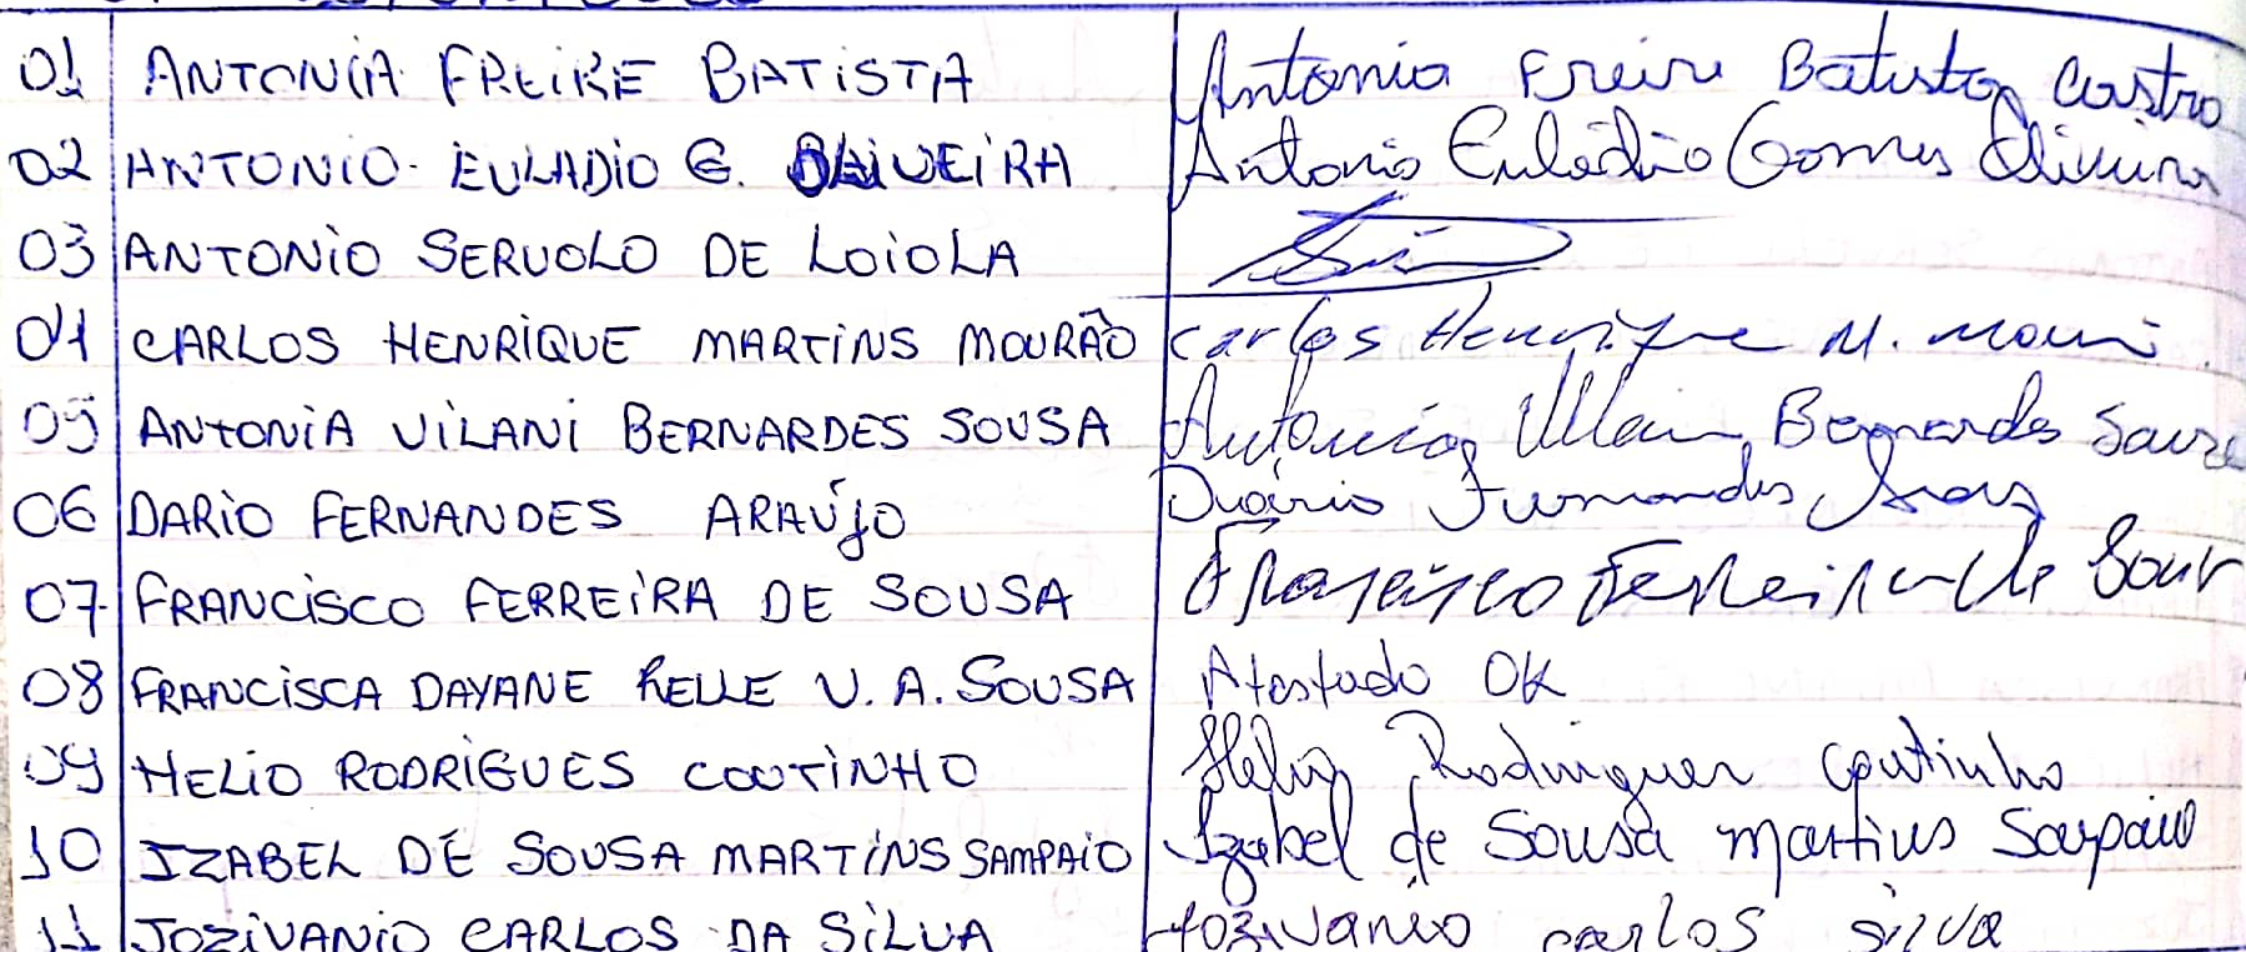 01 ANTONIA FREIRE BATISTA Antonia Freire Batista Castro
02 ANTONIO EULADIO G. OLIVEIRA Antonio Euládio Gomes Oliveira
03 ANTONIO SERVOLO DE LOIOLA
04 CARLOS HENRIQUE MARTINS MOURÃO Carlos Henrique M.
05 ANTONIA VILANI BERNARDES SOUSA Antonia Bernardes
06 DARIO FERNANDES ARAÚJO Dário Fernandes
07 FRANCISCO FERREIRA DE SOUSA Francisco Ferreira de
08 FRANCISCA DAYANE KELLE V. A. SOUSA Atestado OK
09 HELIO RODRIGUES COUTINHO Helio Rodrigues Coutinho
10 IZABEL DE SOUSA MARTINS SAMPAIO Izabel de Sousa Martins Sampaio
11 JOZIVANIO CARLOS DA SILVA Jozivanio carlos silva